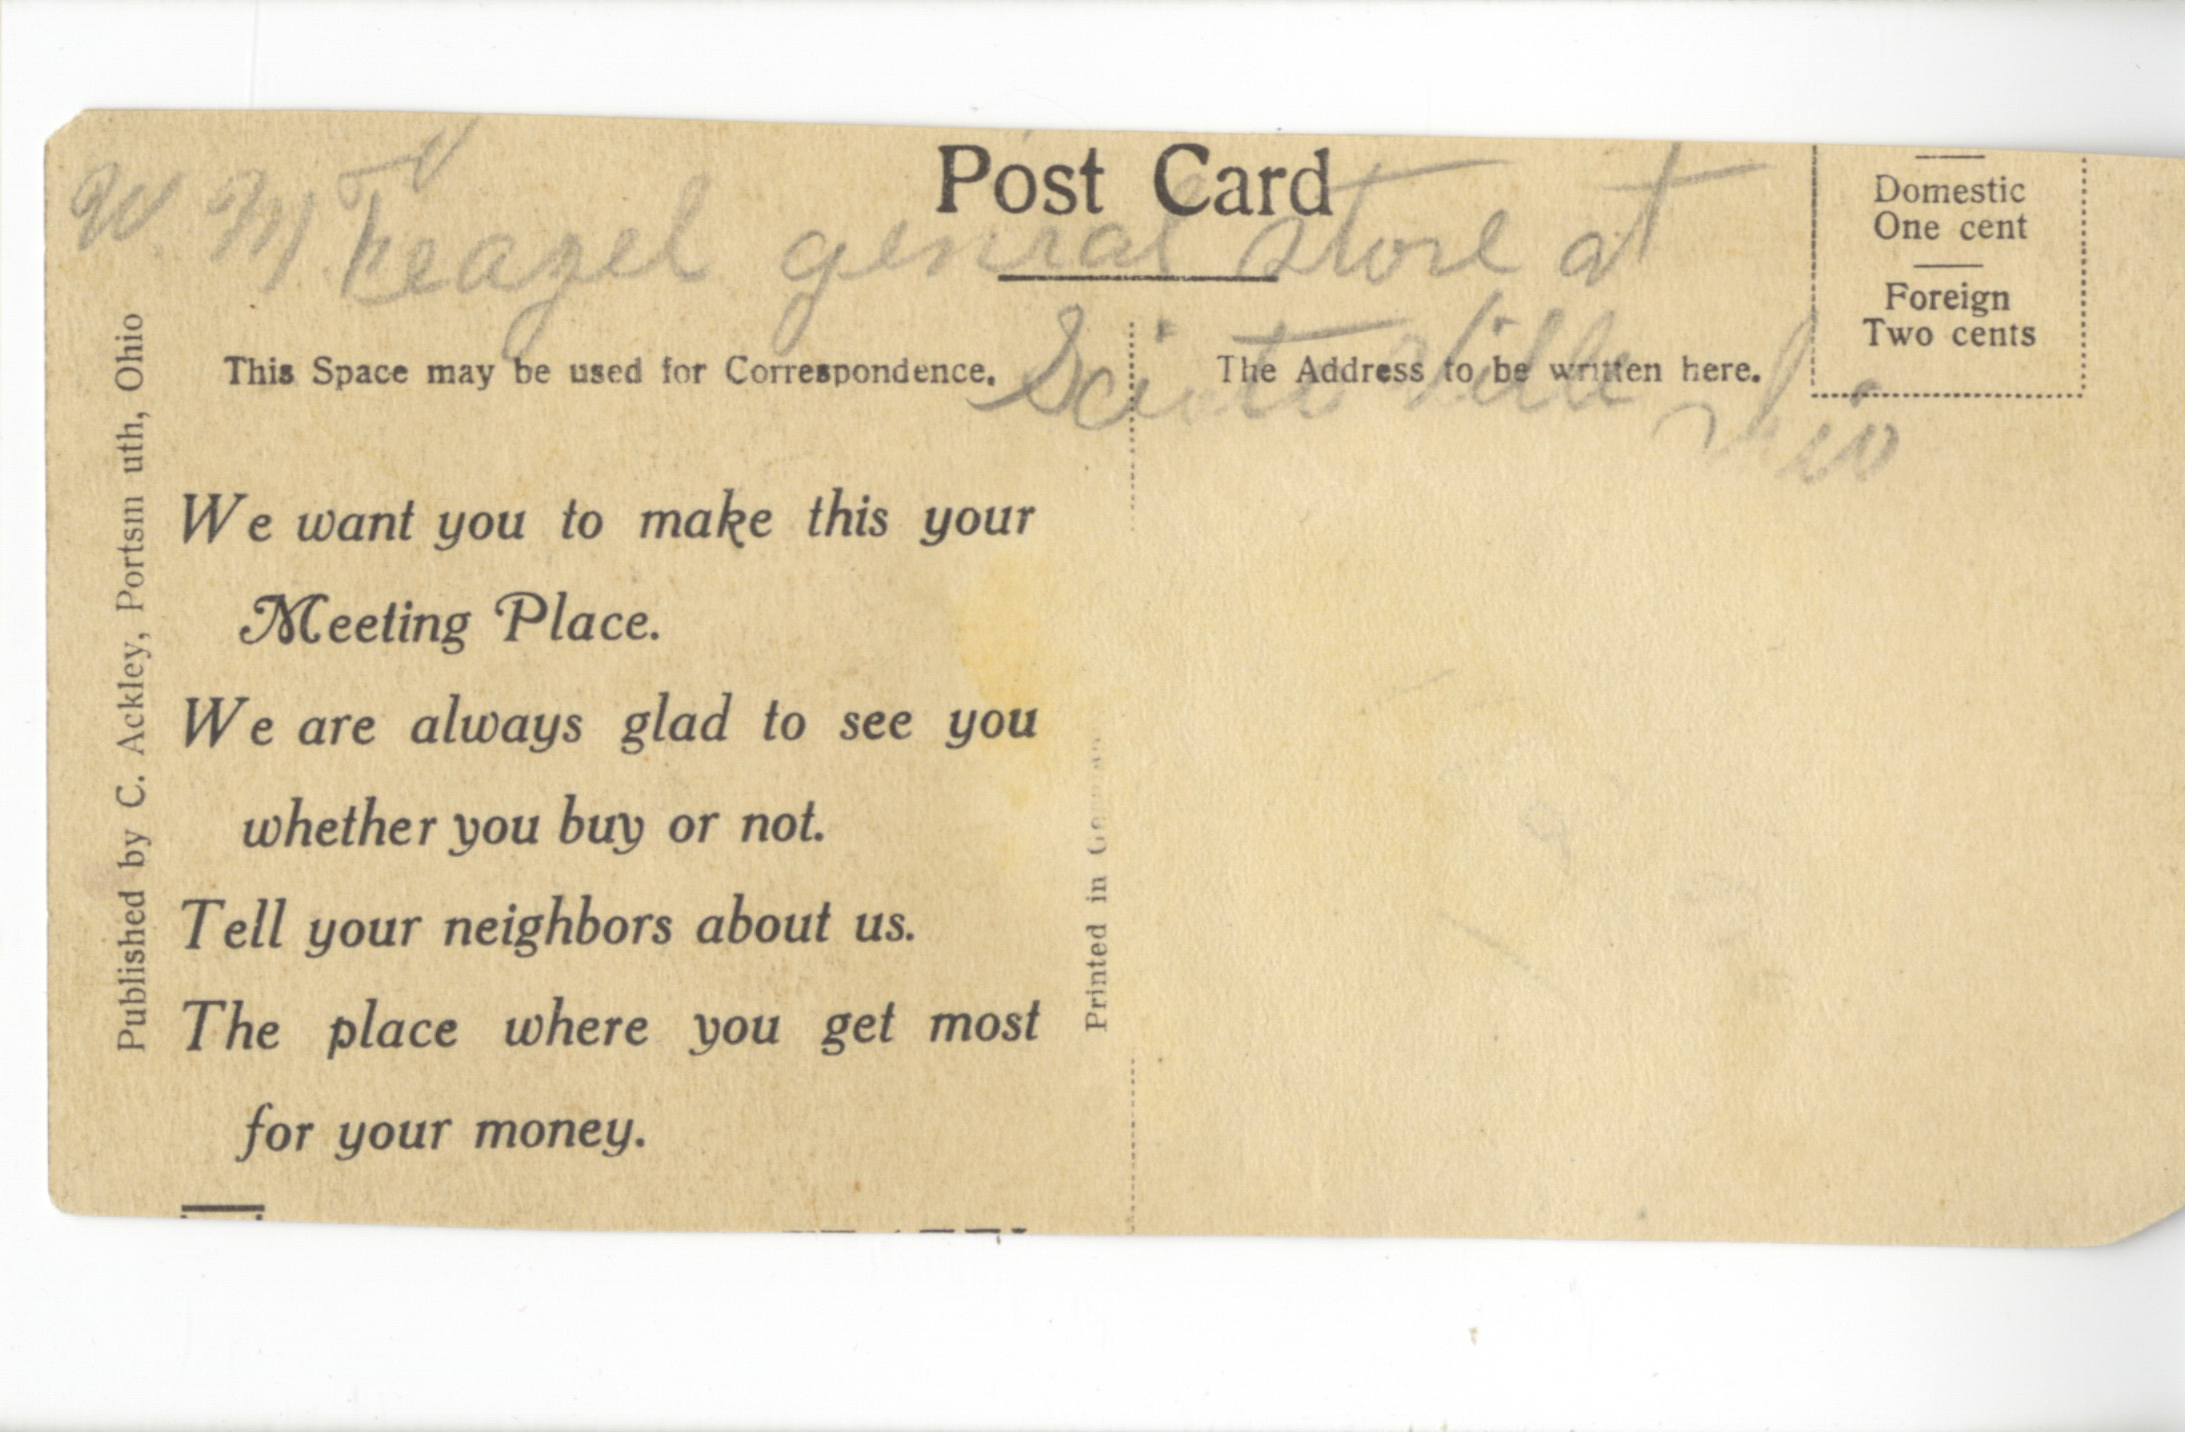 Post Card
W. M. Feazel genral store at
Sciotoville Ohio
Domestic
One cent
Foreign
Two cents
This Space may be used for Correspondence.
The Address to be written here.
We want you to make this your
Meeting Place.
We are always glad to see you
whether you buy or not.
Tell your neighbors about us.
The place where you get most
for your money.
Published by C. Ackley, Portsm uth, Ohio
Printed in Germany